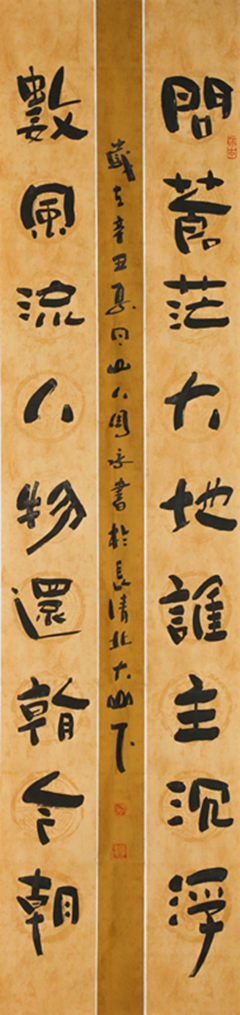 問蒼茫大地誰主沉浮
歲在辛丑夏山人周書於長清北大山下
數風流人物還看今朝